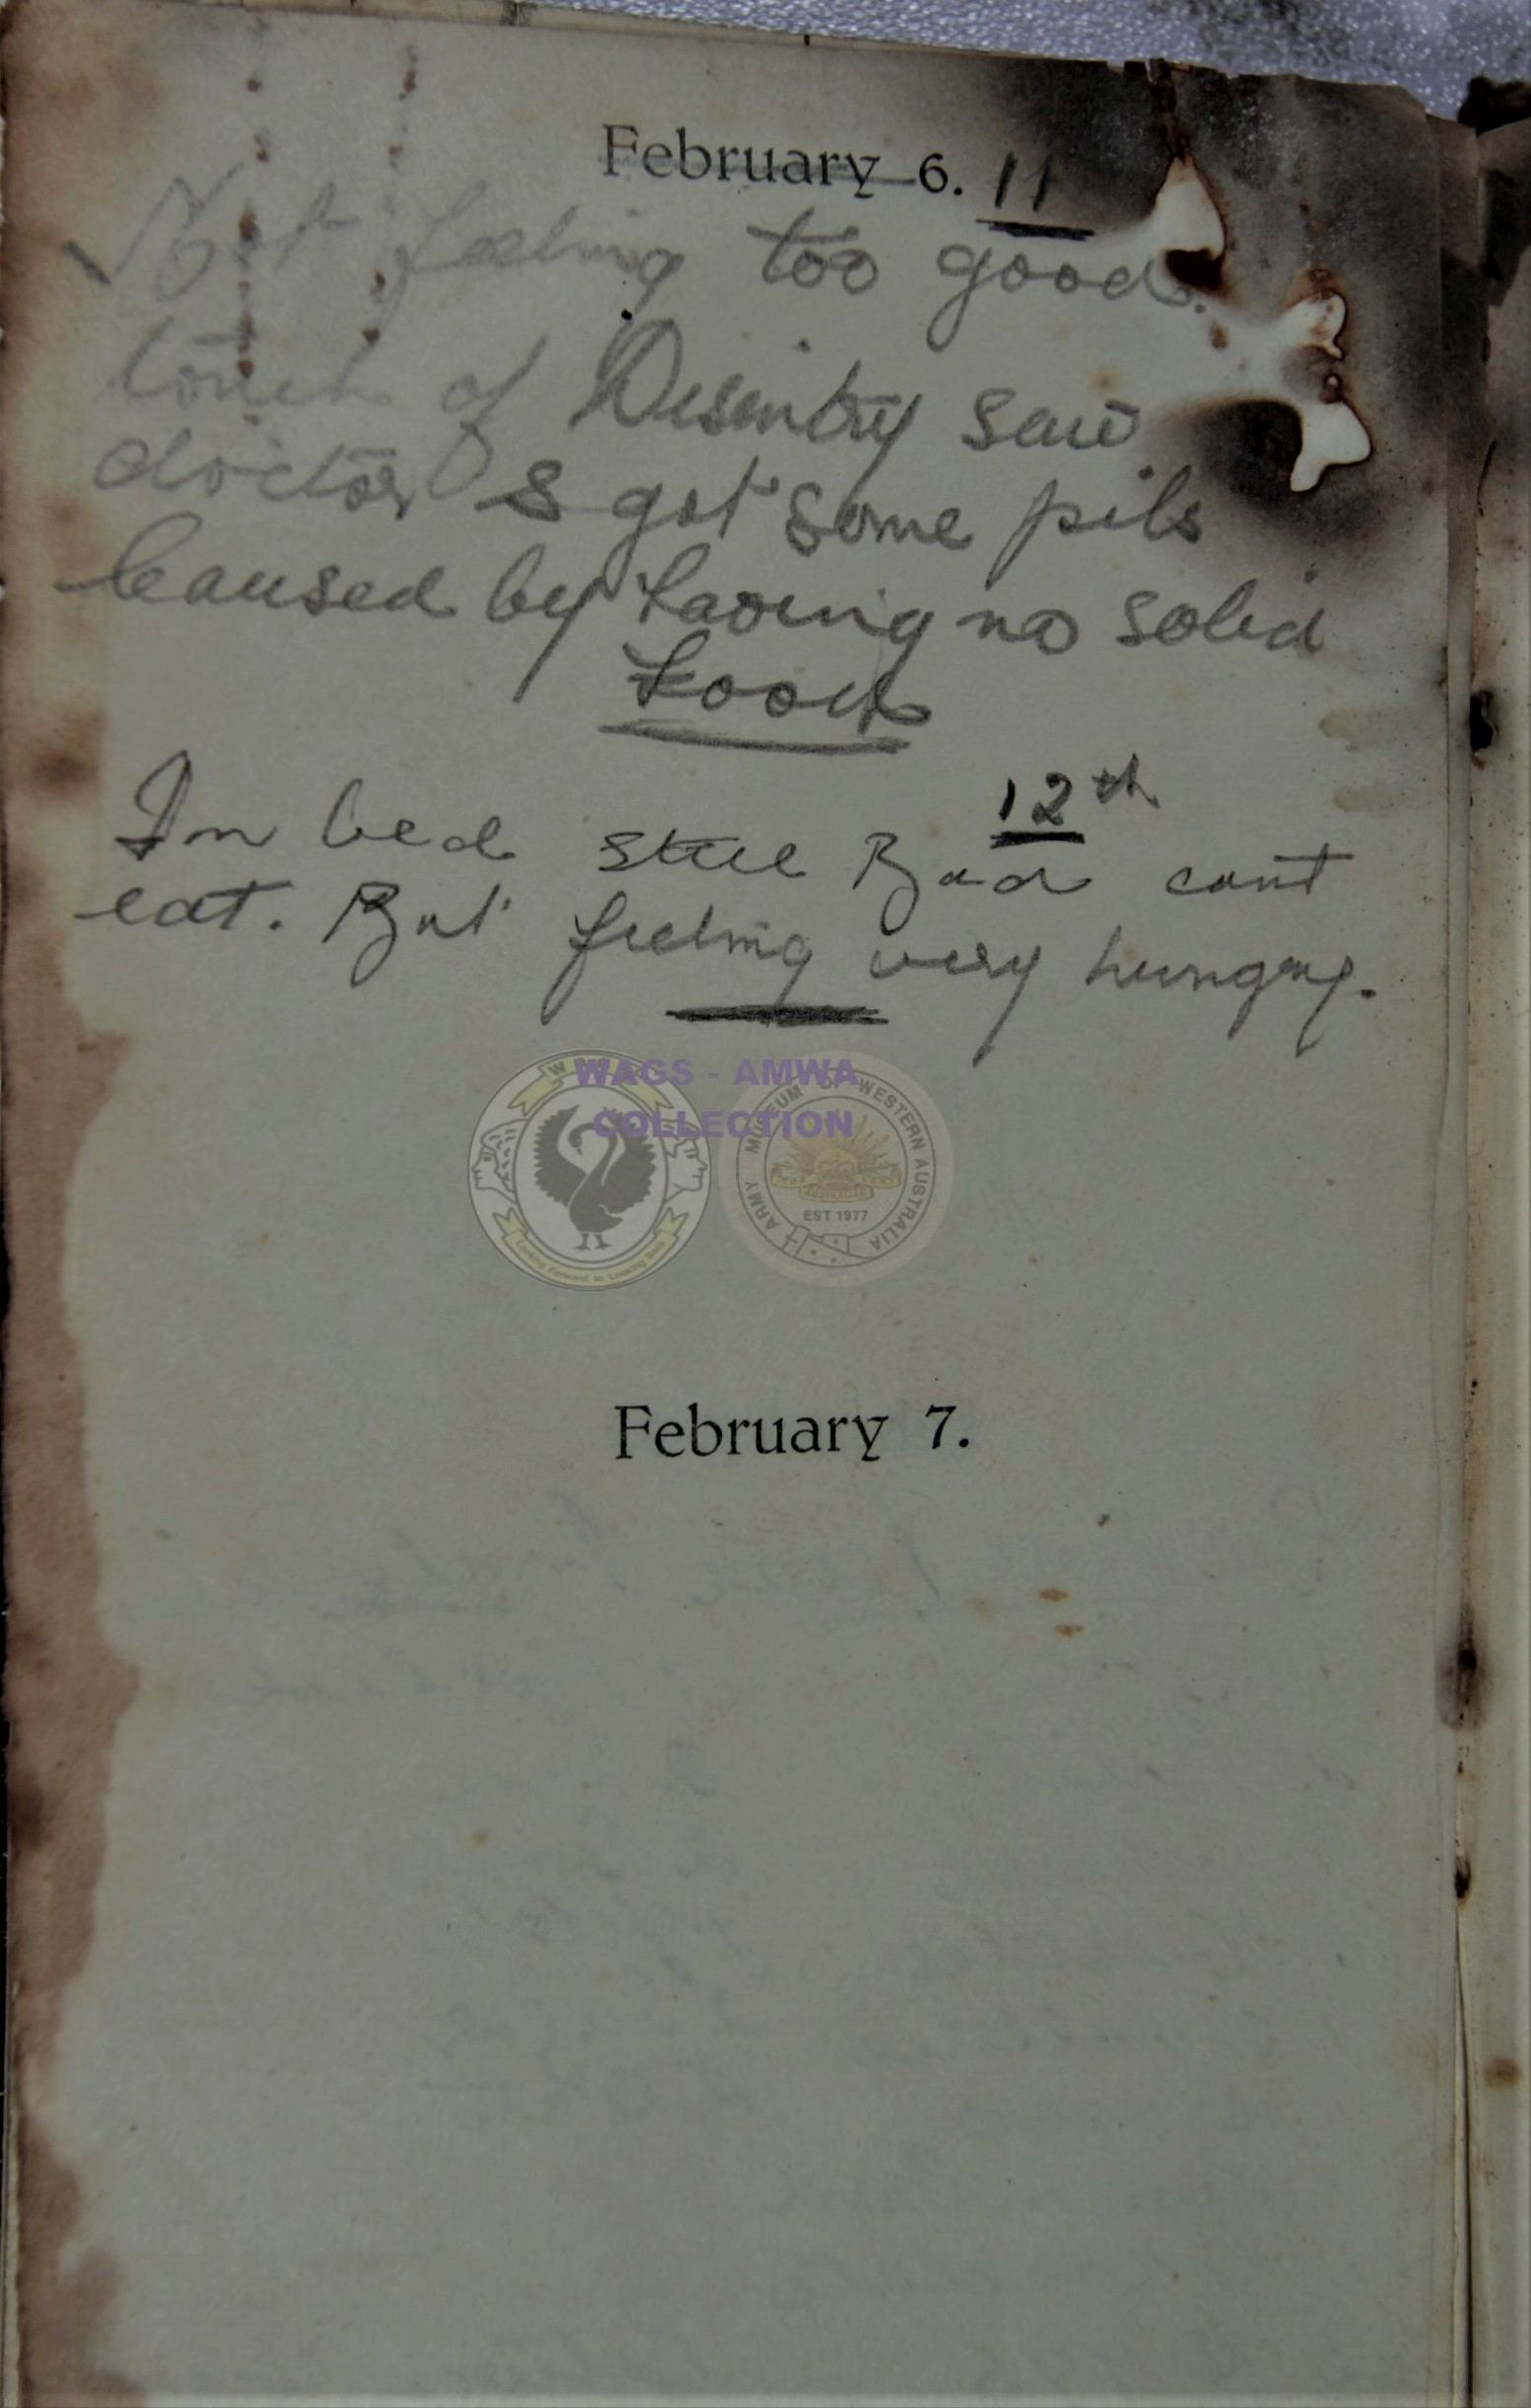 February 6. 11
Not feeling too good.
touch of Disentry saw
doctor & got some pils
Caused by having no solid
food
12th
In bed still Bad cant
eat. But feeling very hungry.
WAGS - AMWA
COLLECTION
ARMY MUSEUM OF WESTERN AUSTRALIA
EST 1977
Looking Forward to Looking Back
February 7.